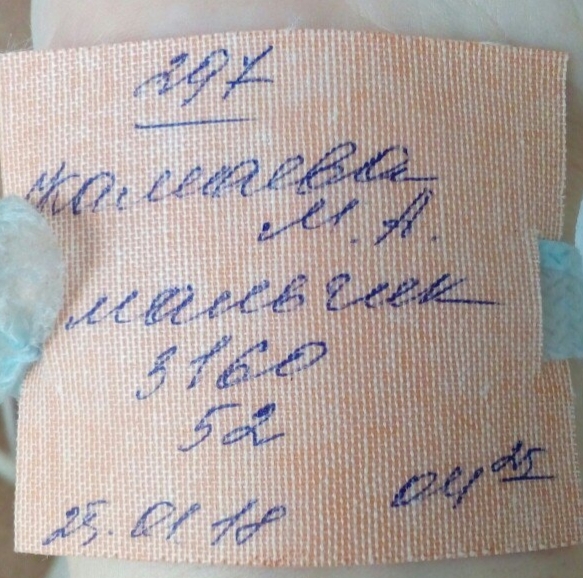 297
Жамаева
М. А.
мальчик
3160
52
04 25
25. 01 18